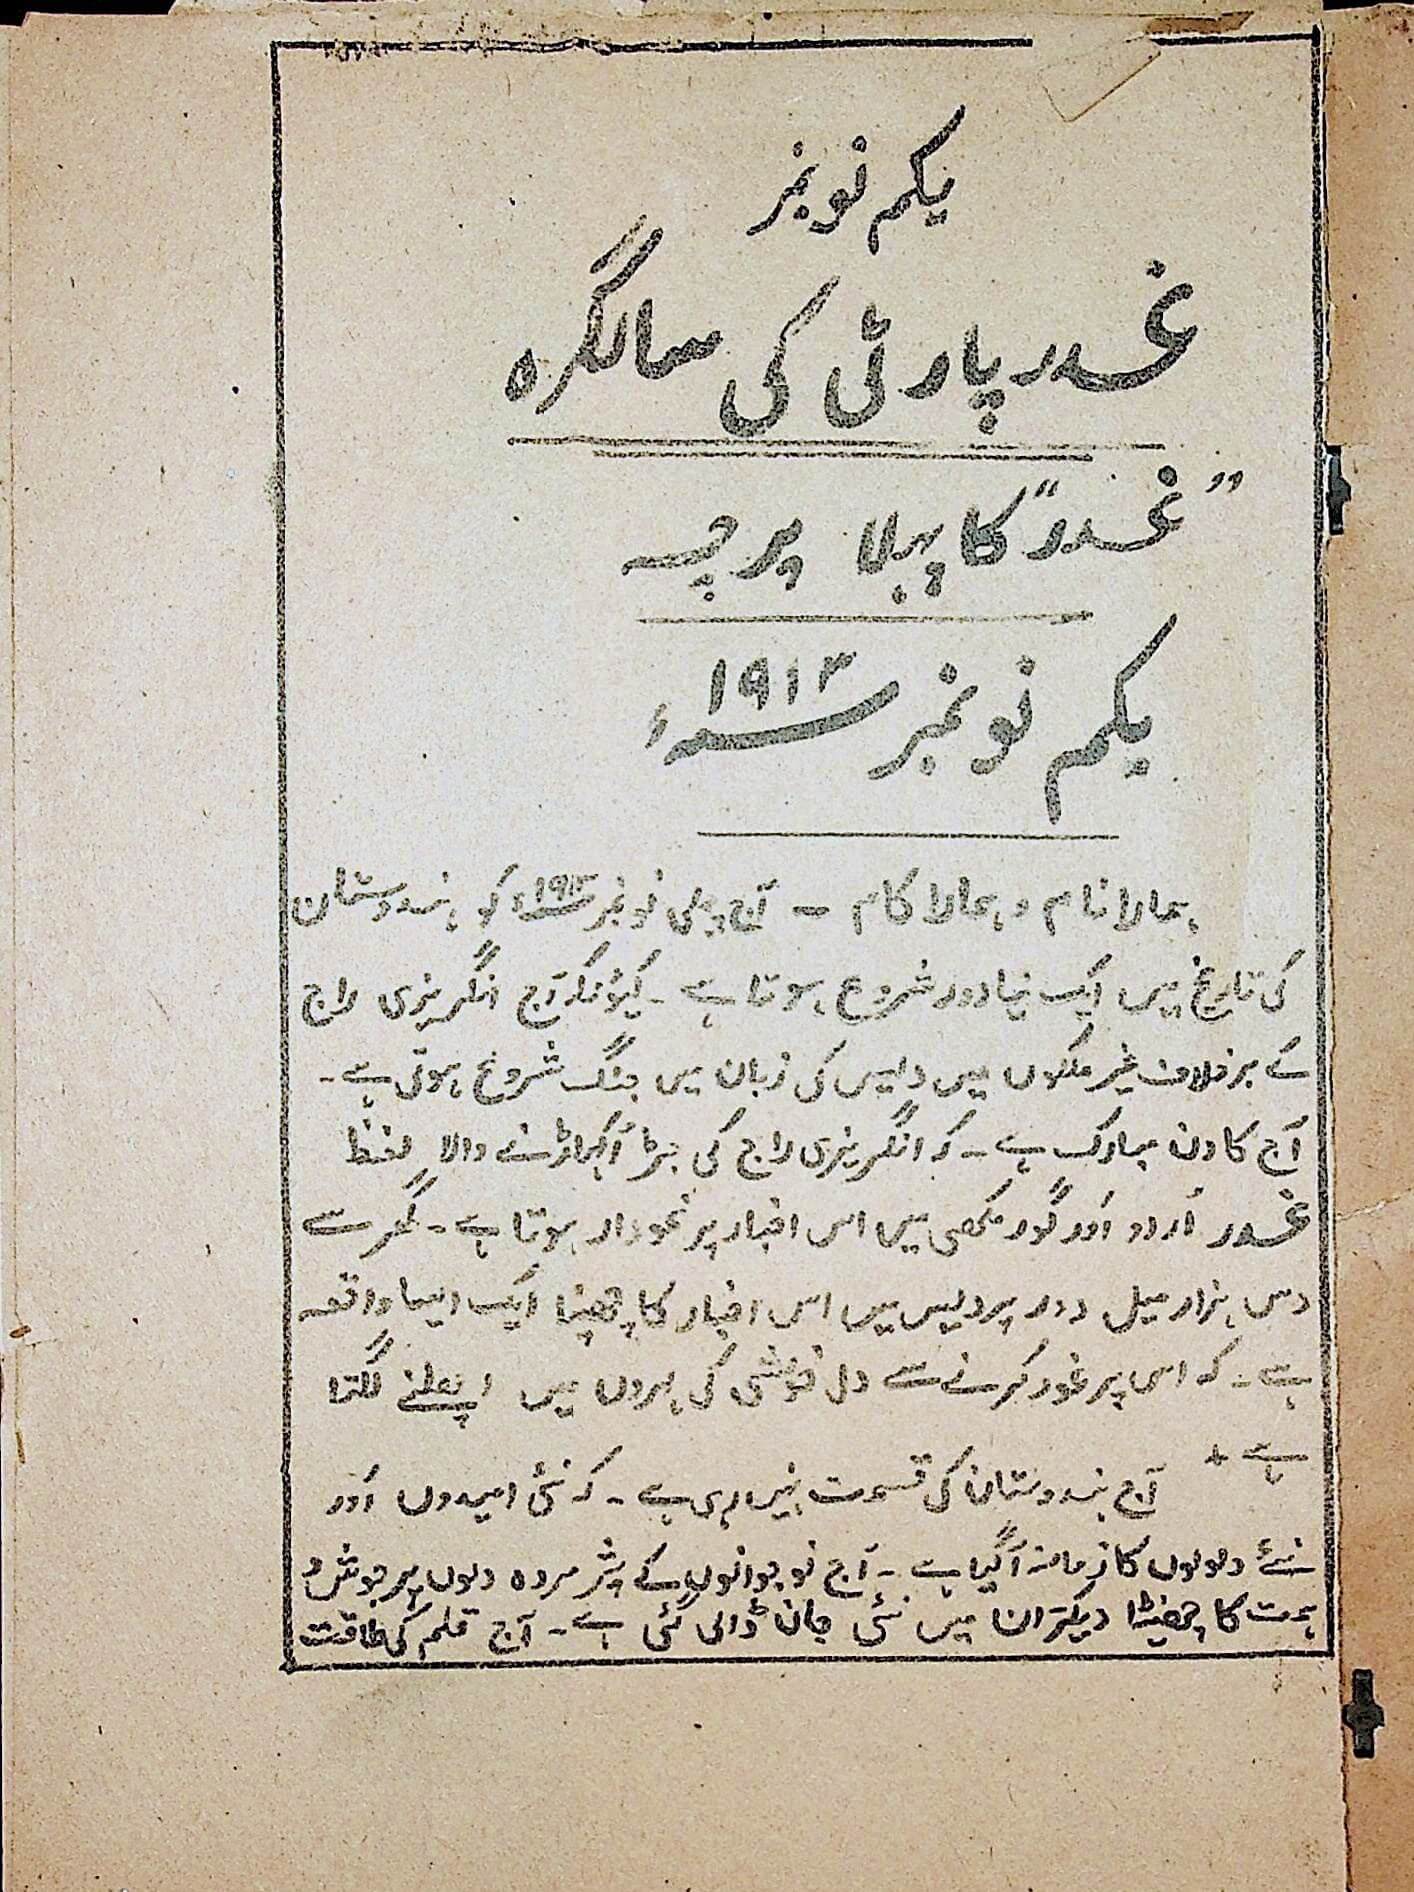 یکم نومبر
غدر پارٹی کی سالگرہ
"غدر" کا پہلا پرچہ
یکم نومبر ۱۹۱۳ء
ہمارا نام و ہمارا کام - آج پہلی نومبر ۱۹۱۳ء کو ہندوستان
کی تاریخ میں ایک نیا دور شروع ہوتا ہے - کیونکہ آج انگریزی راج
کے برخلاف غیر ملکوں میں دیس کی زبان میں جنگ شروع ہوتی ہے -
آج کا دن مبارک ہے - کہ انگریزی راج کی جڑ اُکھاڑنے والا لفظ
غدر اُردو اَور گورمکھی میں اس اخبار پر نمودار ہوتا ہے - گھر سے
دس ہزار میل دور پردیس میں اس اخبار کا چھپنا ایک ایسا واقعہ
ہے - کہ اس پر غور کرنے سے دل خوشی کی لہروں میں اچھلنے لگتا
ہے +
آج ہندوستان کی قسمت پھر رہی ہے - کہ نئی امیدوں اَور
نئے ولولوں کا زمانہ آگیا ہے - آج نوجوانوں کے پژمردہ دلوں پر جوش و
ہمت کا چھینٹا دیکر ان میں نئی جان ڈالی گئی ہے - آج قلم کی طاقت